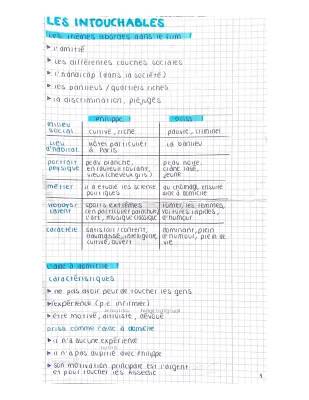 LES INTOUCHABLES
Les thèmes abordés dans le film
l'amitié
Les différentes couches sociales
l'handicap (dans la société)
les banlieux / quartiers riches
la discrimination, préjugés
Philippe Driss
milieu social cultivé, riche pauvre, criminel
lieu d'habitat hôtel particulier à Paris la banlieu
portrait physique peau blanche, en fauteuil roulant, vieux (cheveux gris) peau noire, crâne rasé, jeune
métier il a étudié les science politiques au chômage, ensuite aide à domicile
talent sports extrêmes (en particulier parachute) l'art, musique classique fumer, les femmes, voitures rapides, l'humour
caractère intelligent, cultivé, ouvert dominant, plein d'humour, plein de vie
L'aide à domicile
caractéristiques
ne pas avoir peur de toucher les gens
l'expérience (p.e. infirmier)
être motivé, altruiste, dévoué
Driss comme l'aide à domicile
il n'a aucune expérience
il n'a pas de pitié avec Philippe
son motivation principale est l'argent
et pour toucher les Assedic